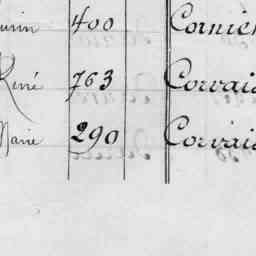 400 Corniè
René 763 Corvais
Marie 290 Corvais